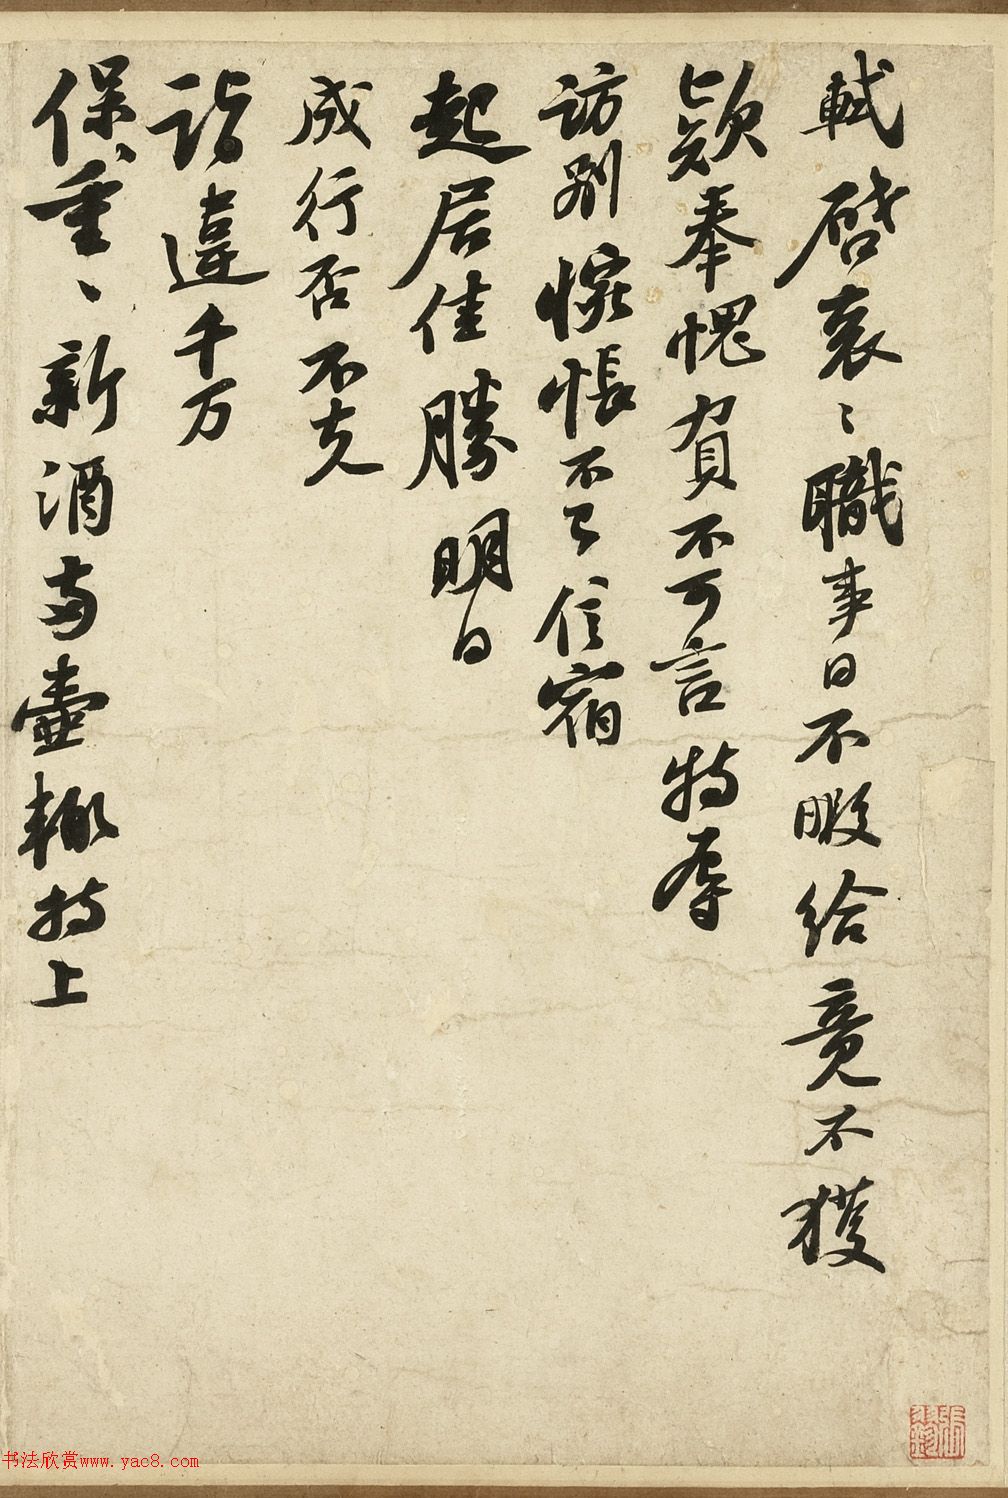 軾啓衰〻職事日不暇給竟不獲
款奉愧負不可言特辱
訪別悵悵不已信宿
起居佳勝明日
成行否不克
詣違千万
保重〻新酒两壷輙持上
书法欣赏www.yac8.com